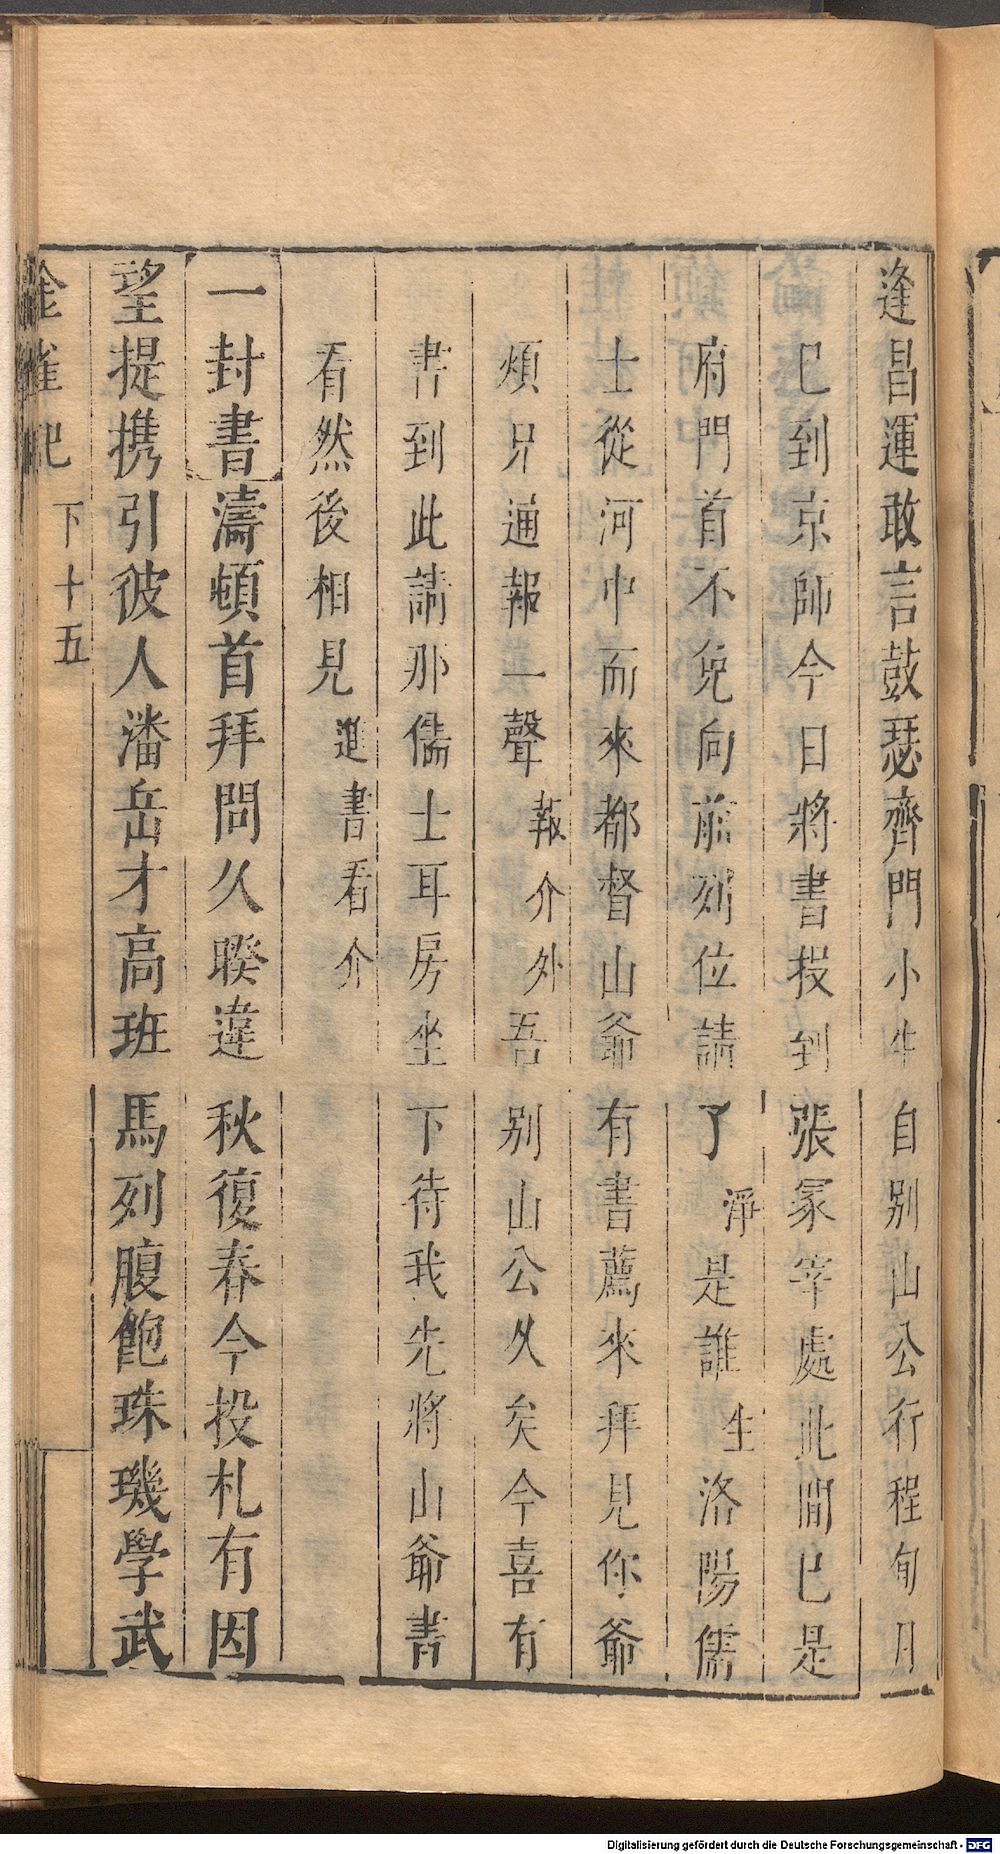 逢昌運敢言鼓瑟齊門小生自别山公行程旬月
已到京師今日將書投到張冢宰處此間已是
府門首不免向前列位請了淨是誰生洛陽儒
士從河中而來都督山爺有書薦來拜見你爺
煩兄通報一聲報介外吾别山公久矣今喜有
書到此請那儒士耳房坐下待我先將山爺書
看然後相見進書看介
一封書濤頓首拜問久暌違秋復春今投札有因
望提携引彼人潘岳才高班馬列腹飽珠璣學武
金雀記 下十五
Digitalisierung gefördert durch die Deutsche Forschungsgemeinschaft - DFG